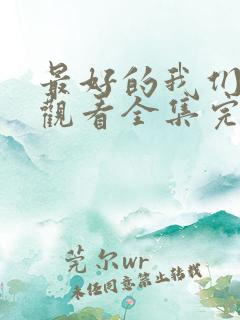 最好的我们
觀看全集完
莞尔wr
未经同意禁止转载